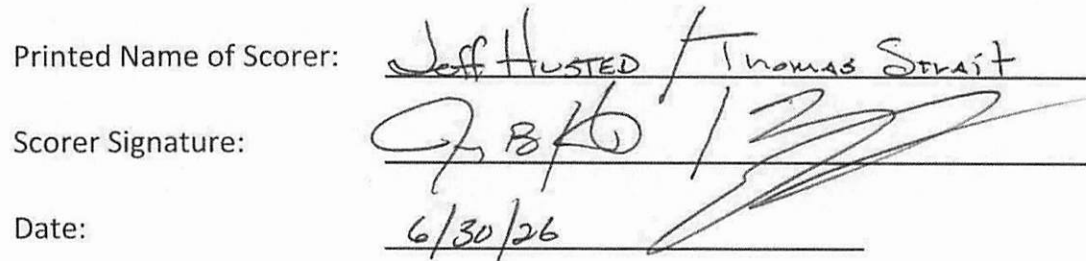 Printed Name of Scorer: Jeff Husted / Thomas Strait
Scorer Signature:
Date: 6/30/26